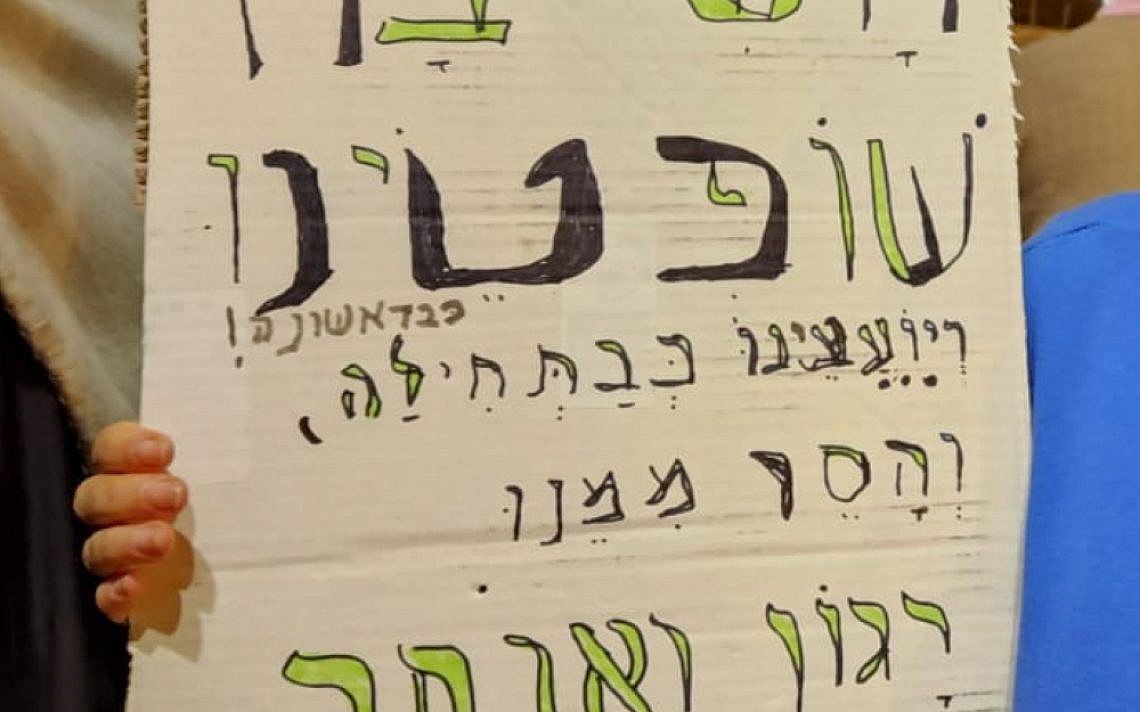 שׁוֹפְטֵינוּ
כבראשונה!
וְיוֹעֲצֵינוּ כְּבַתְּחִילָה,
וְהָסֵר מִמֵּנוּ
יָגוֹן ואנחה